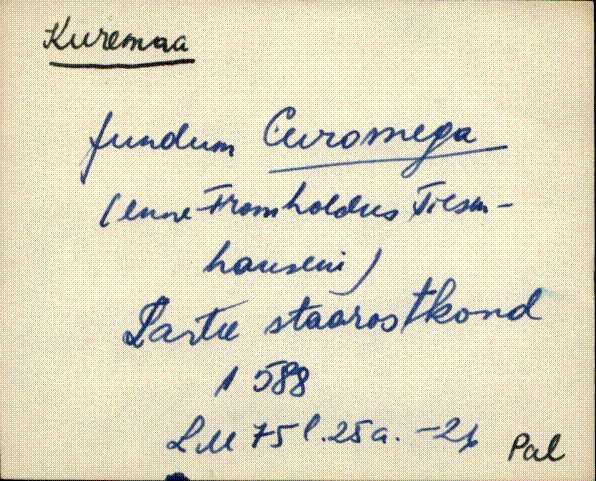 Kuremaa
fundum Curomega
(enne Fromholdus Tiesen-
hauseni)
Tartu staarostkond
1588
LM 75 l. 25a. -
Pal